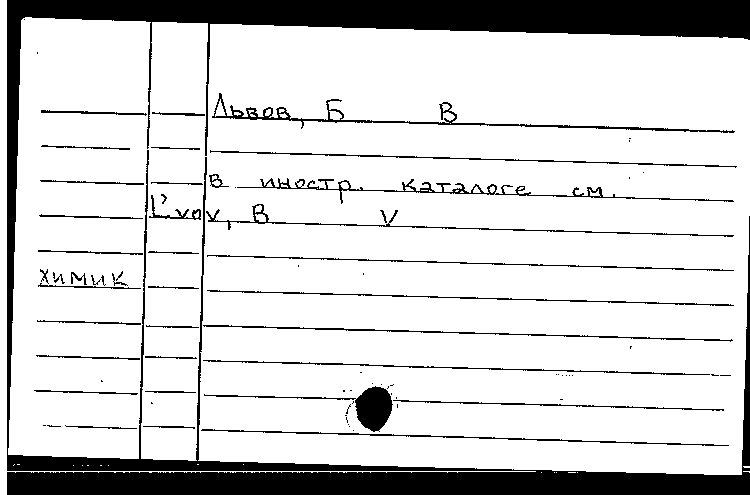 Львов, Б В
в иностр. каталоге см.
L'vov, B V
химик